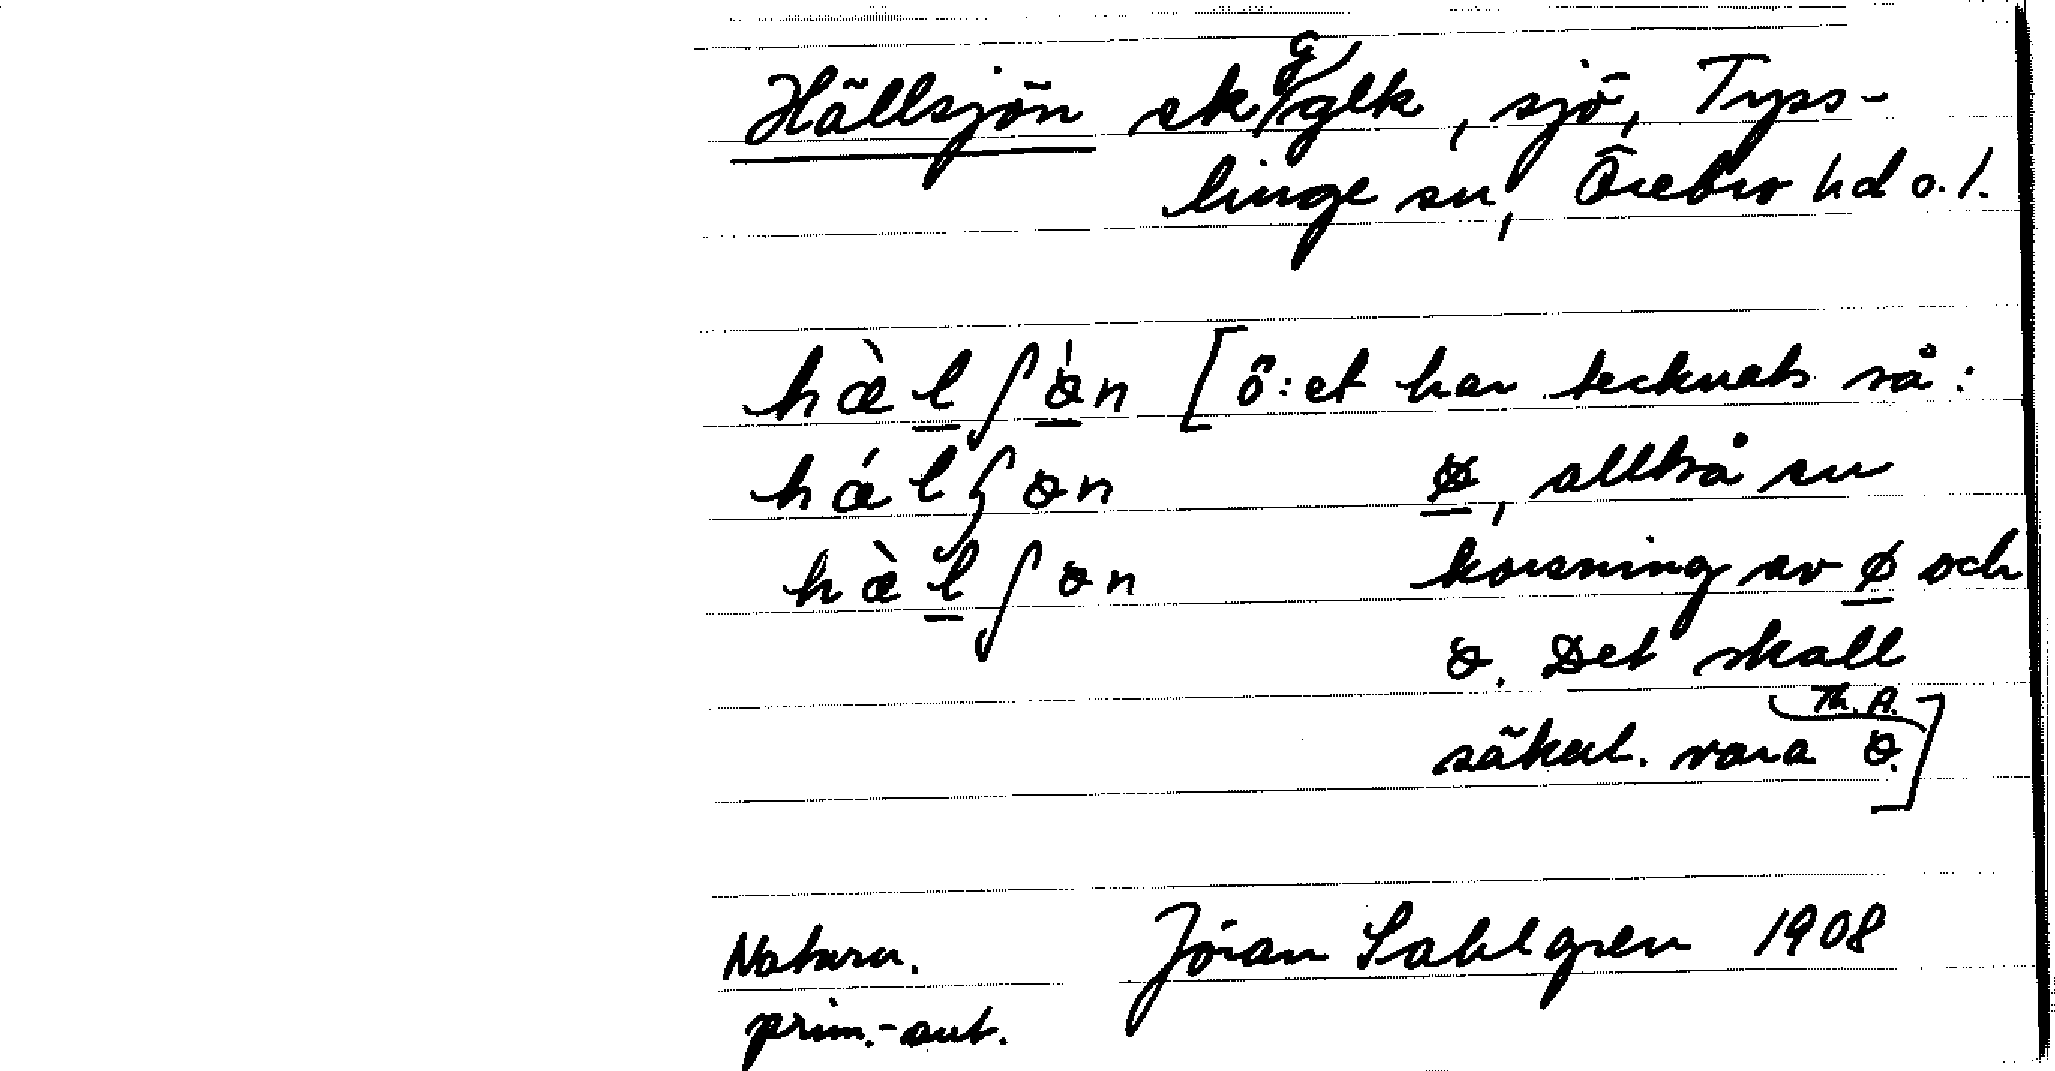 Hällsjön ek G/glk, sjö, Tyss-
linge sn, Örebro hd o. l.
hæ̀l̲ʃɵ̲́n [ö:et har tecknats så:
hǽlʃɵn ø̵, alltså en
hæ̀l̲ʃɵn korsning av ø̲ och
ɵ. Det skall
Th. A.
säkert. vara ɵ.]
Naturn. Jöran Sahlgren 1908
prim.-ant.